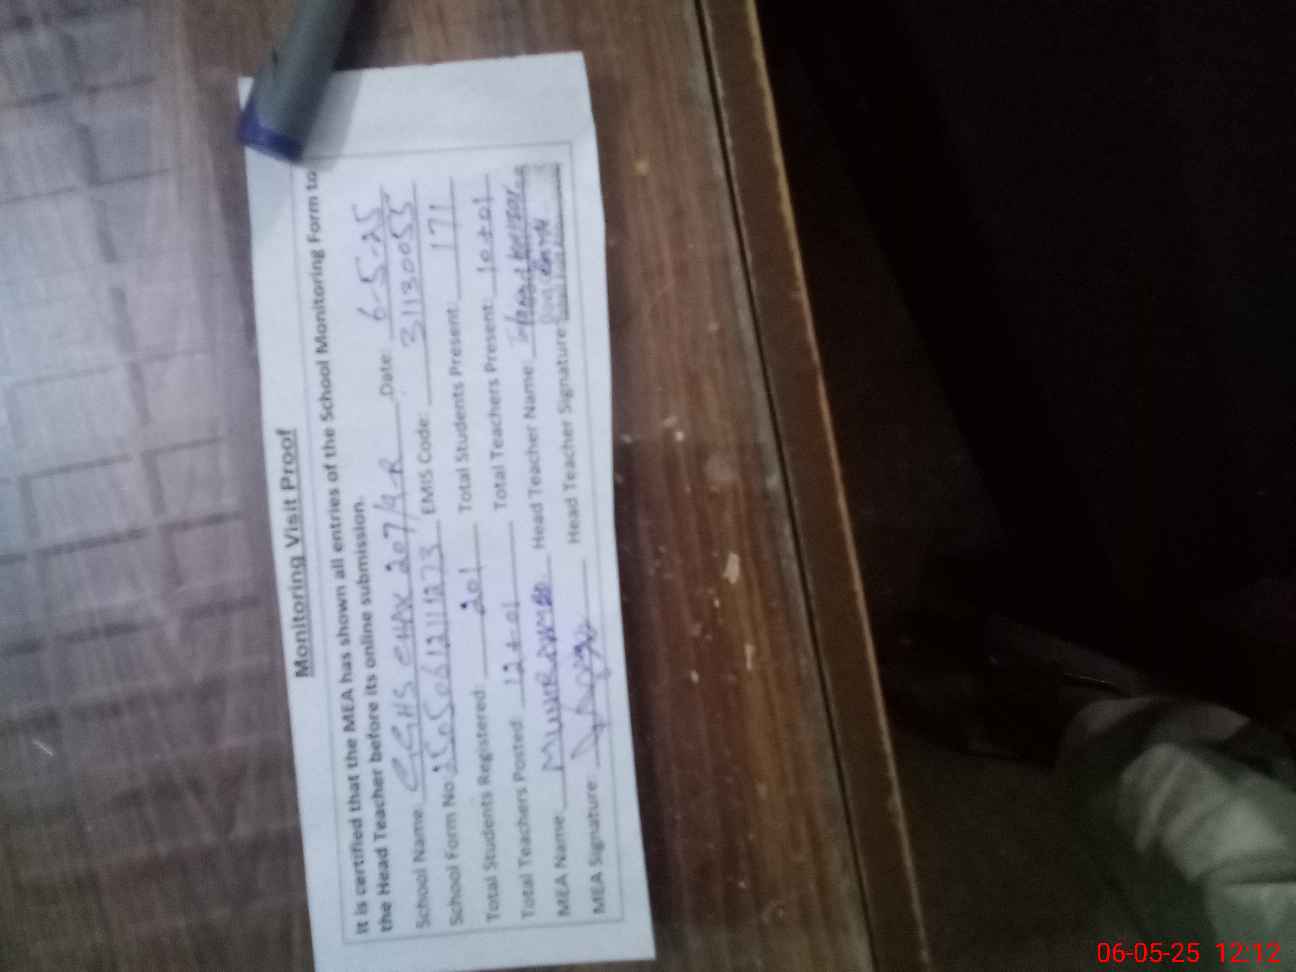 Monitoring Visit Proof
It is certified that the MEA has shown all entries of the School Monitoring Form to
the Head Teacher before its online submission.
School Name: GGHS CHAK 207/9-R Date: 6-5-25
School Form No. EMIS Code: 31130053
Total Students Registered: 201 Total Students Present: 171
Total Teachers Posted: 12+01 Total Teachers Present: 10+01
MEA Name: Head Teacher Name:
MEA Signature: Head Teacher Signature:
06-05-25 12:12